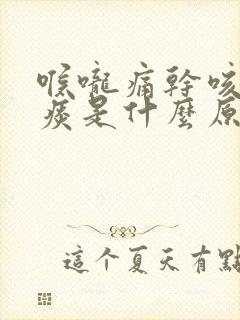 喉嚨痛幹咳
痰是什麼原
這个夏天有點